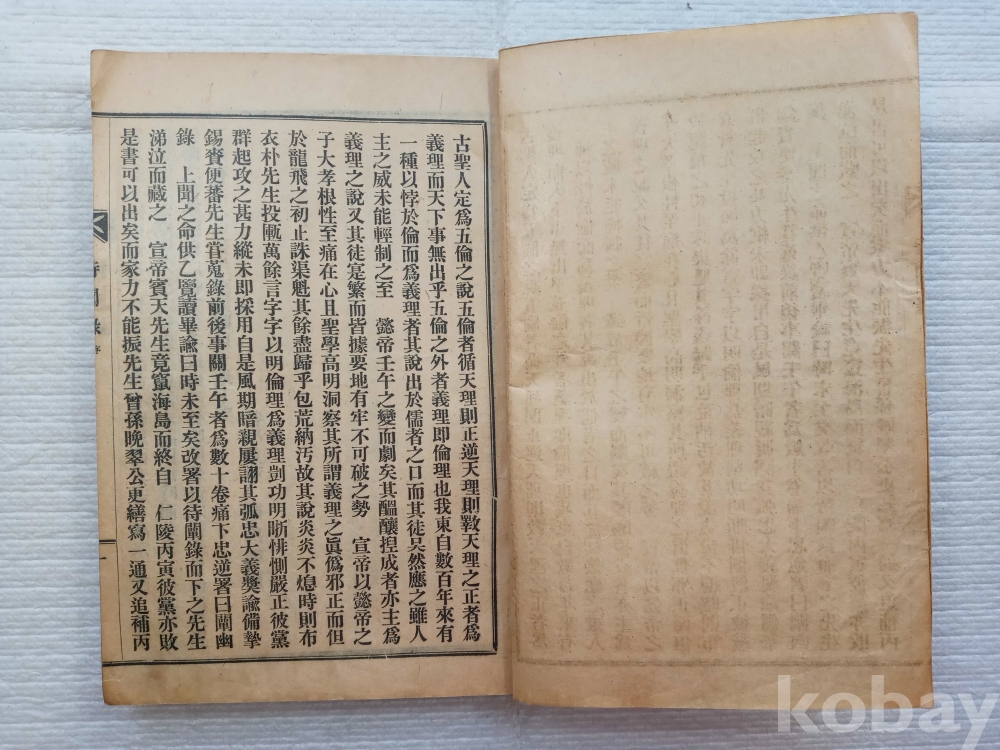 古聖人定爲五倫之說五倫者循天理則正逆天理則斁天理之正者爲
義理而天下事無出乎五倫之外者義理即倫理也我東自數百年來有
一種以悖於倫而爲義理者其說出於儒者之口而其徒吳然應之雖人
主之威未能輕制之至 懿帝壬午之變而劇矣其醞釀揑成者亦主爲
義理之說又其徒寔繁而皆據要地有牢不可破之勢 宣帝以懿帝之
子大孝根性至痛在心且聖學高明洞察其所謂義理之眞僞邪正而但
於龍飛之初止誅渠魁其餘盡歸乎包荒納汚故其說炎炎不熄時則布
衣朴先生投匭萬餘言字字以明倫理爲義理剴功明晣悱惻嚴正彼黨
群起攻之甚力縱未即採用自是風期暗親屢詡其弧忠大義奬諭備摯
錫賚便蕃先生甞蒐錄前後事關壬午者爲數十卷痛下忠逆署曰闡幽
錄 上聞之命供乙覽讀畢諭曰時未至矣改署以待闡錄而下之先生
涕泣而藏之 宣帝賓天先生竟竄海島而終自 仁陵丙寅彼黨亦敗
是書可以出矣而家力不能振先生曾孫晩翠公更繕寫一通又追補丙
闡錄
序
一
kobay